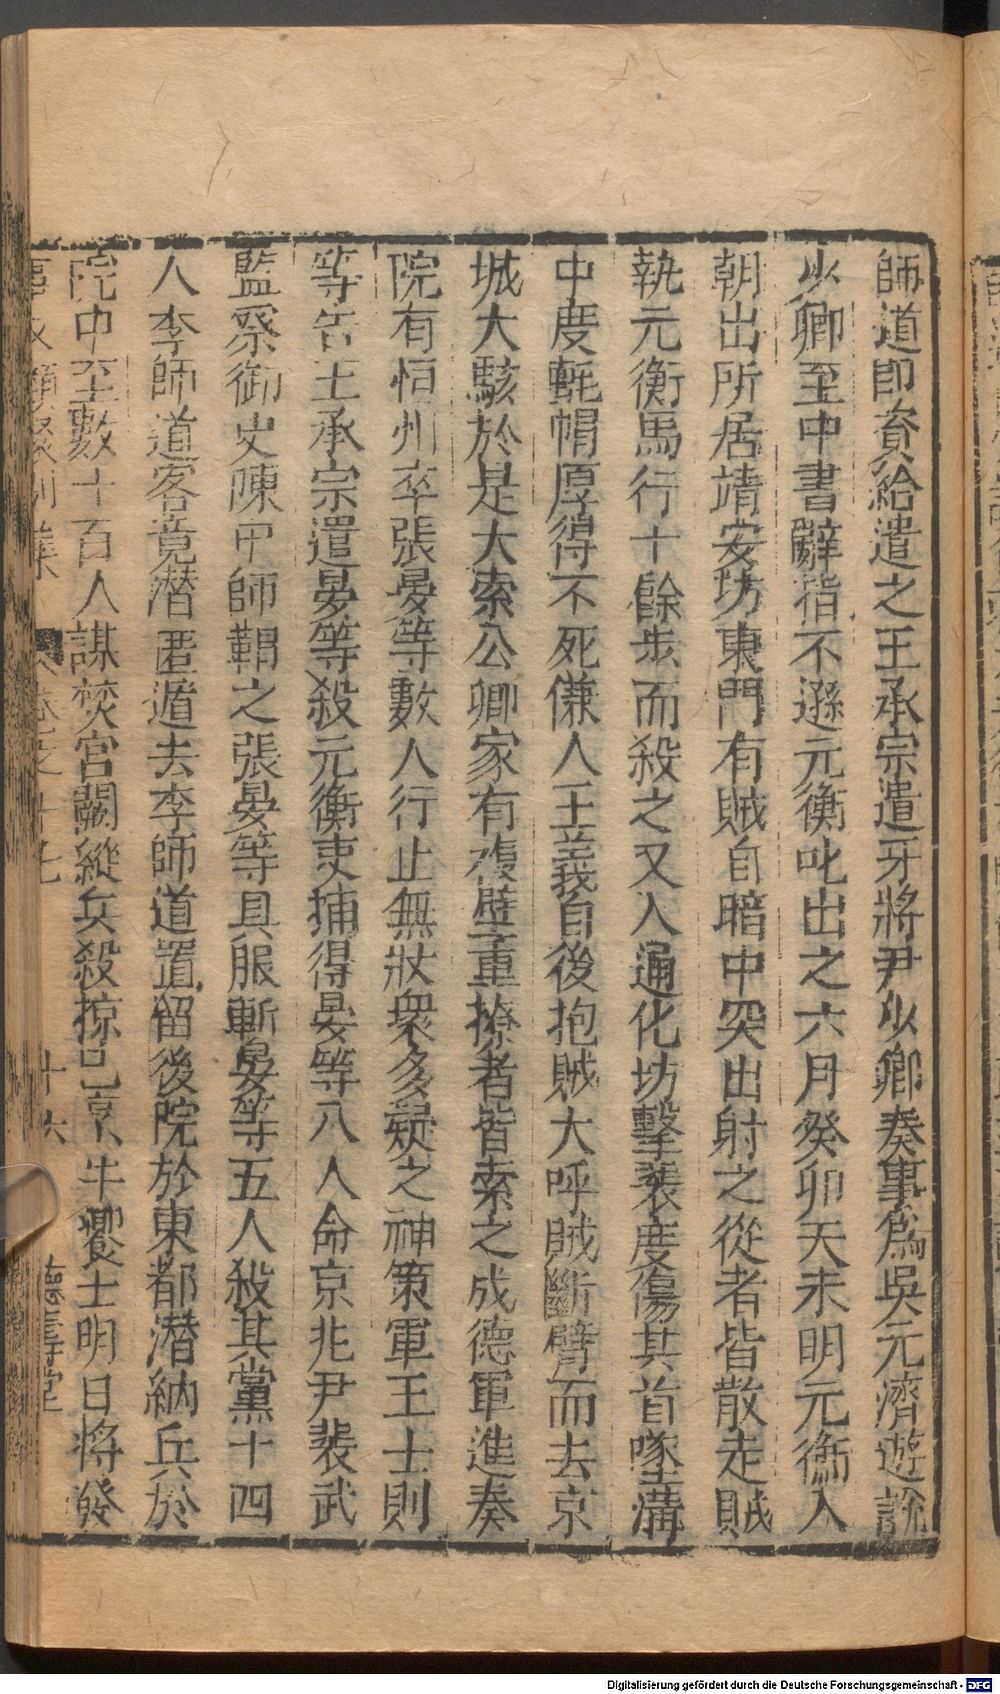 師道即資給遣之王承宗遣牙將尹少卿奏事爲吳元濟遊說
少卿至中書辭指不遜元衡叱出之六月癸卯天未明元衡入
朝出所居靖安坊東門有賊自暗中突出射之從者皆散走賊
執元衡馬行十餘步而殺之又入通化坊擊裴度傷其首墜溝
中度氈帽厚得不死傔人王義自後抱賊大呼賊斷臂而去京
城大駭於是大索公卿家有複壁重橑者皆索之成德軍進奏
院有恒州卒張晏等數人行止無狀衆多疑之神策軍王士則
等告王承宗遣晏等殺元衡吏捕得晏等八人命京兆尹裴武
監察御史陳中師鞫之張晏等具服斬晏等五人殺其黨十四
人李師道客竟潛匿遁去李師道置留後院於東都潛納兵於
院中至數十百人謀焚宮闕縱兵殺掠已烹牛饗士明日將發
卷之十七
十六
德壽堂
Digitalisierung gefördert durch die Deutsche Forschungsgemeinschaft - DFG